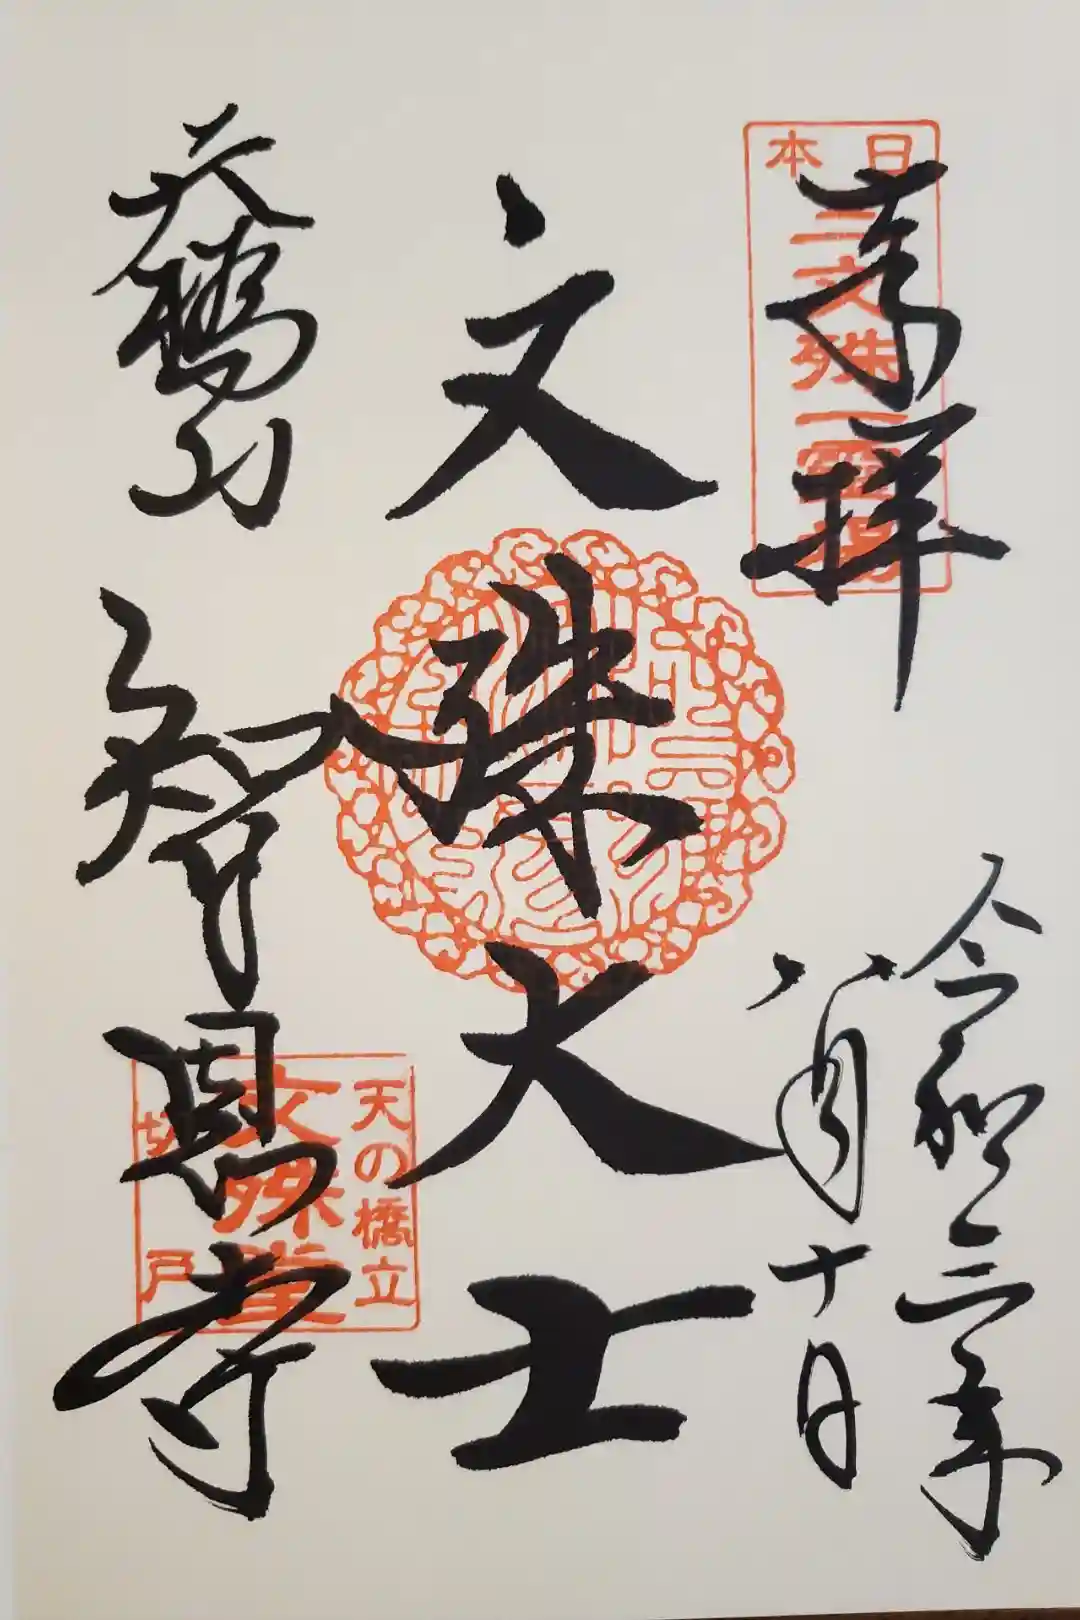 奉拝
日本
三文殊
霊場
令和三年
八月十日
文殊大士
天橋山
智恩寺
天の橋立
文殊堂
切戸